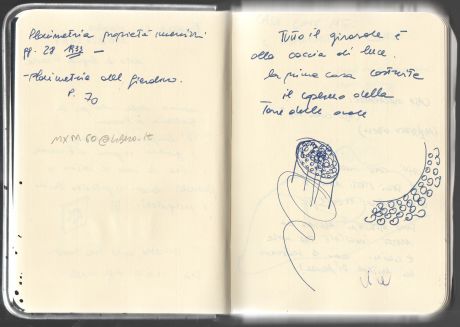 Planimetria proprietà
pp. 28 1933 —
- planimetria del giardino.
P. 70
MXM60@libero.it
Tutto il girasole è
alla caccia di luce.
la prima casa costruita
il
Torre delle